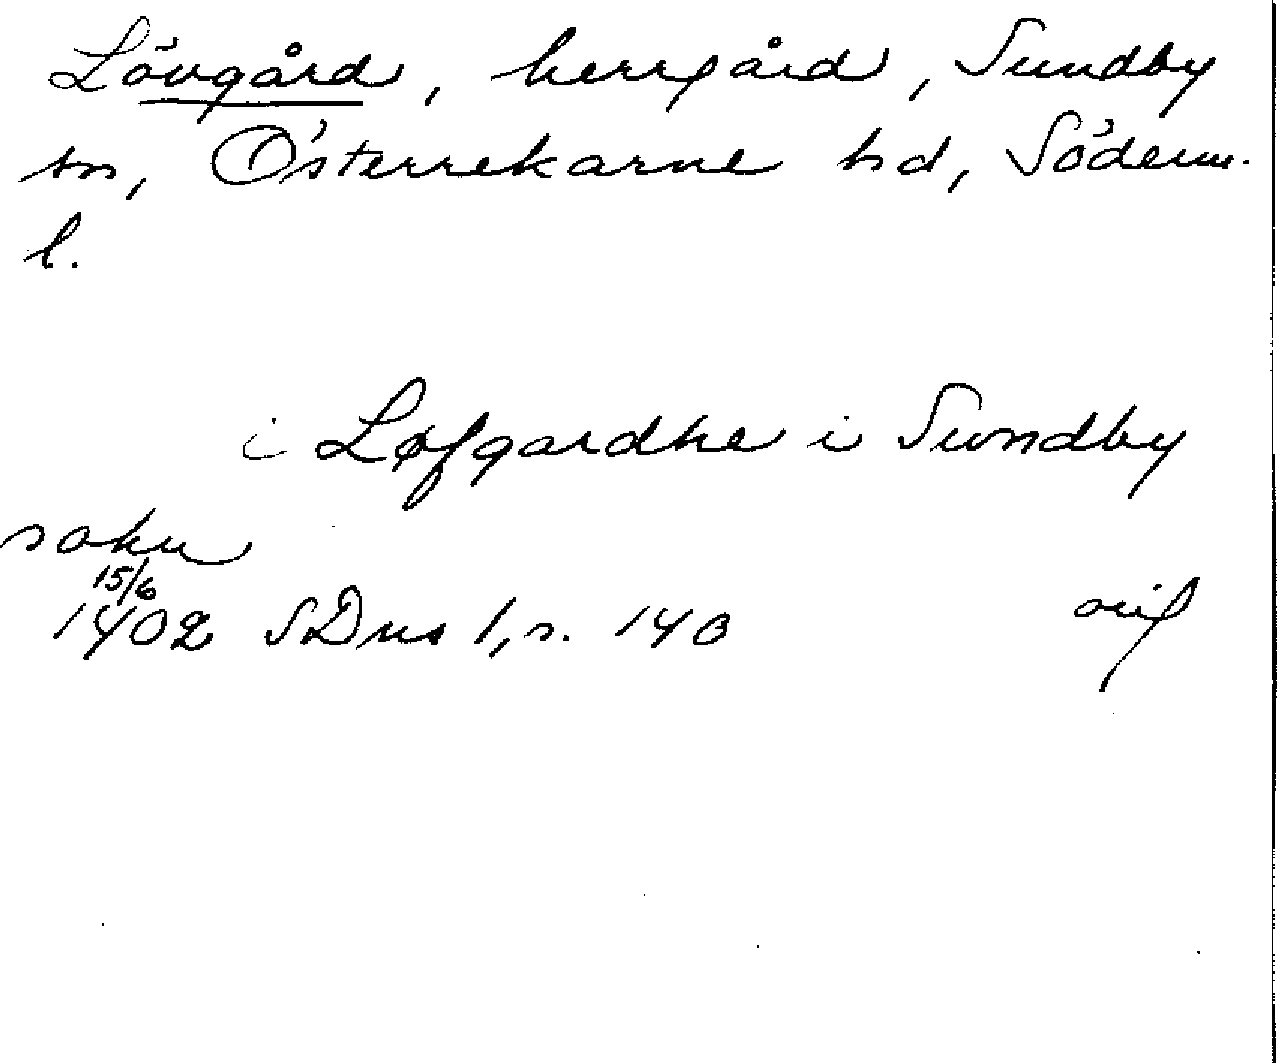 Lövgård, herrgård, Sundby
sn, Österrekarne hd, Söderm.
l.
i Løfgardhe i Swndby
sokn
15/6
1402 SDns 1, s. 140 orig